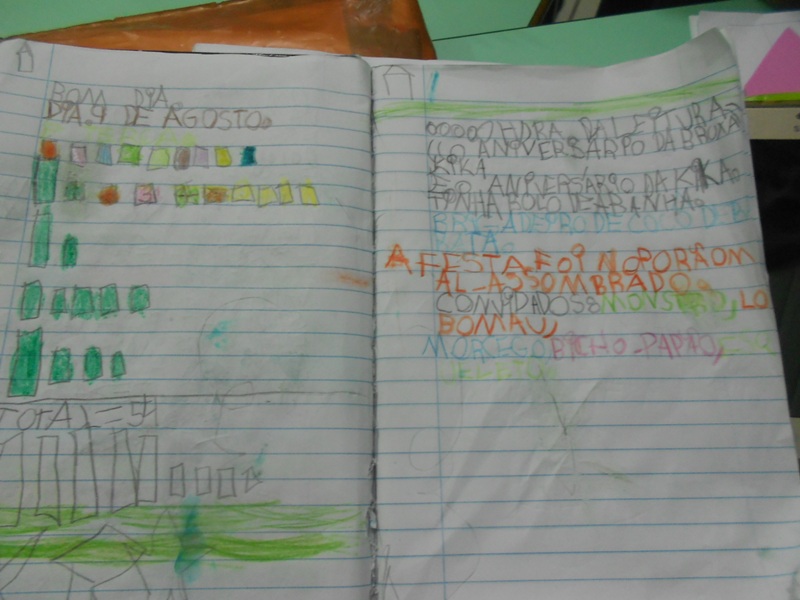 BOM DIA
DIA 9 DE AGOSTO.
TOTAL = 54
HORA DA LEITURA
O ANIVERSÁRIO DA BRUXA
KIKA
E O ANIVERSÁRIO DA KIKA.
TINHA BOLO DE ABANHA.
COCO DE
RATA.
A FESTA FOI NO PORÃO M
AL-ASSOMBRADO.
CONVIDADOS: MONSTRO, LO
BOMAU,
MORCEGO BICHO-PAPÃO, ESQ
UELETO.